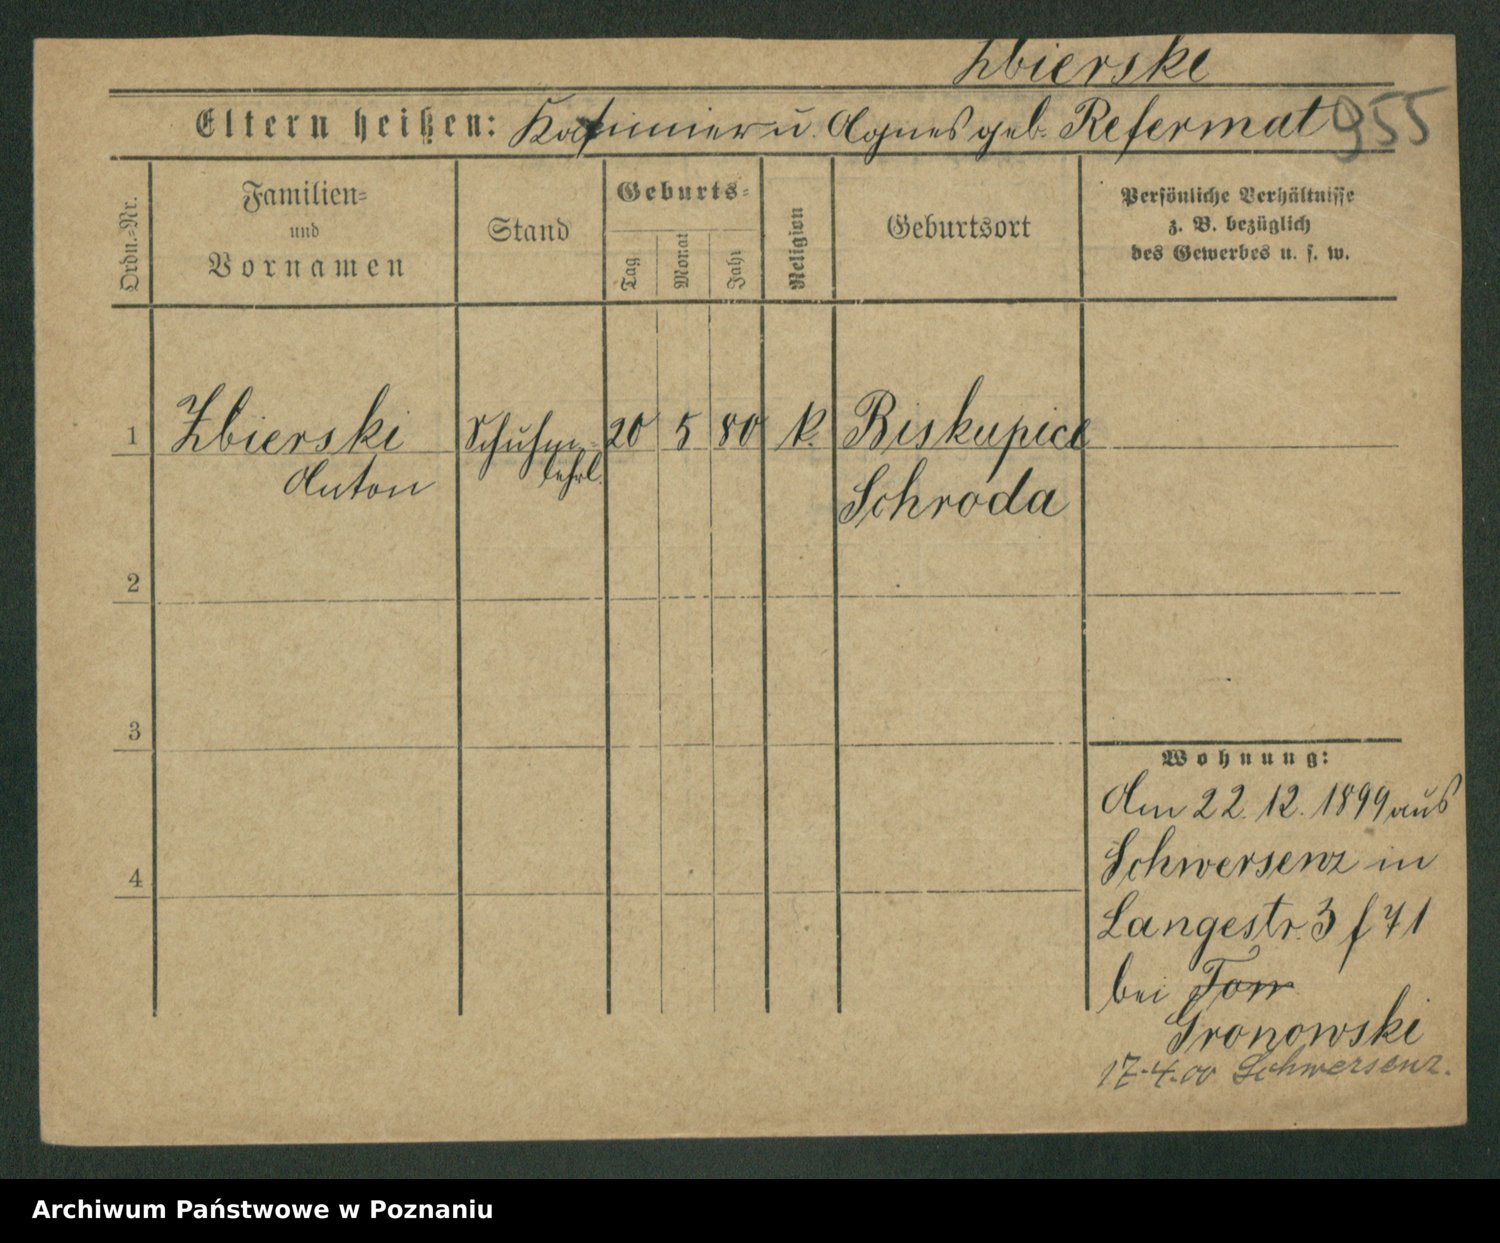 Zbierski
Eltern heißen: Kasimier u. Agnes geb. Refermat 955
Ordn.=Nr.
Familien=
und
Vornamen
Stand
Geburts=
Tag
Monat
Jahr
Religion
Geburtsort
Persönliche Verhältnisse
z. B. bezüglich
des Gewerbes u. s. w.
1 Zbierski Schuhm= 20 5 80 k. Biskupice
Anton lehrl. Schroda
2
3
Wohnung:
Am 22. 12. 1899 aus
Schwersenz in
4
Langestr. 3 f 71
bei Torr
Gronowski
17.4.00 Schwersenz.
Archiwum Państwowe w Poznaniu